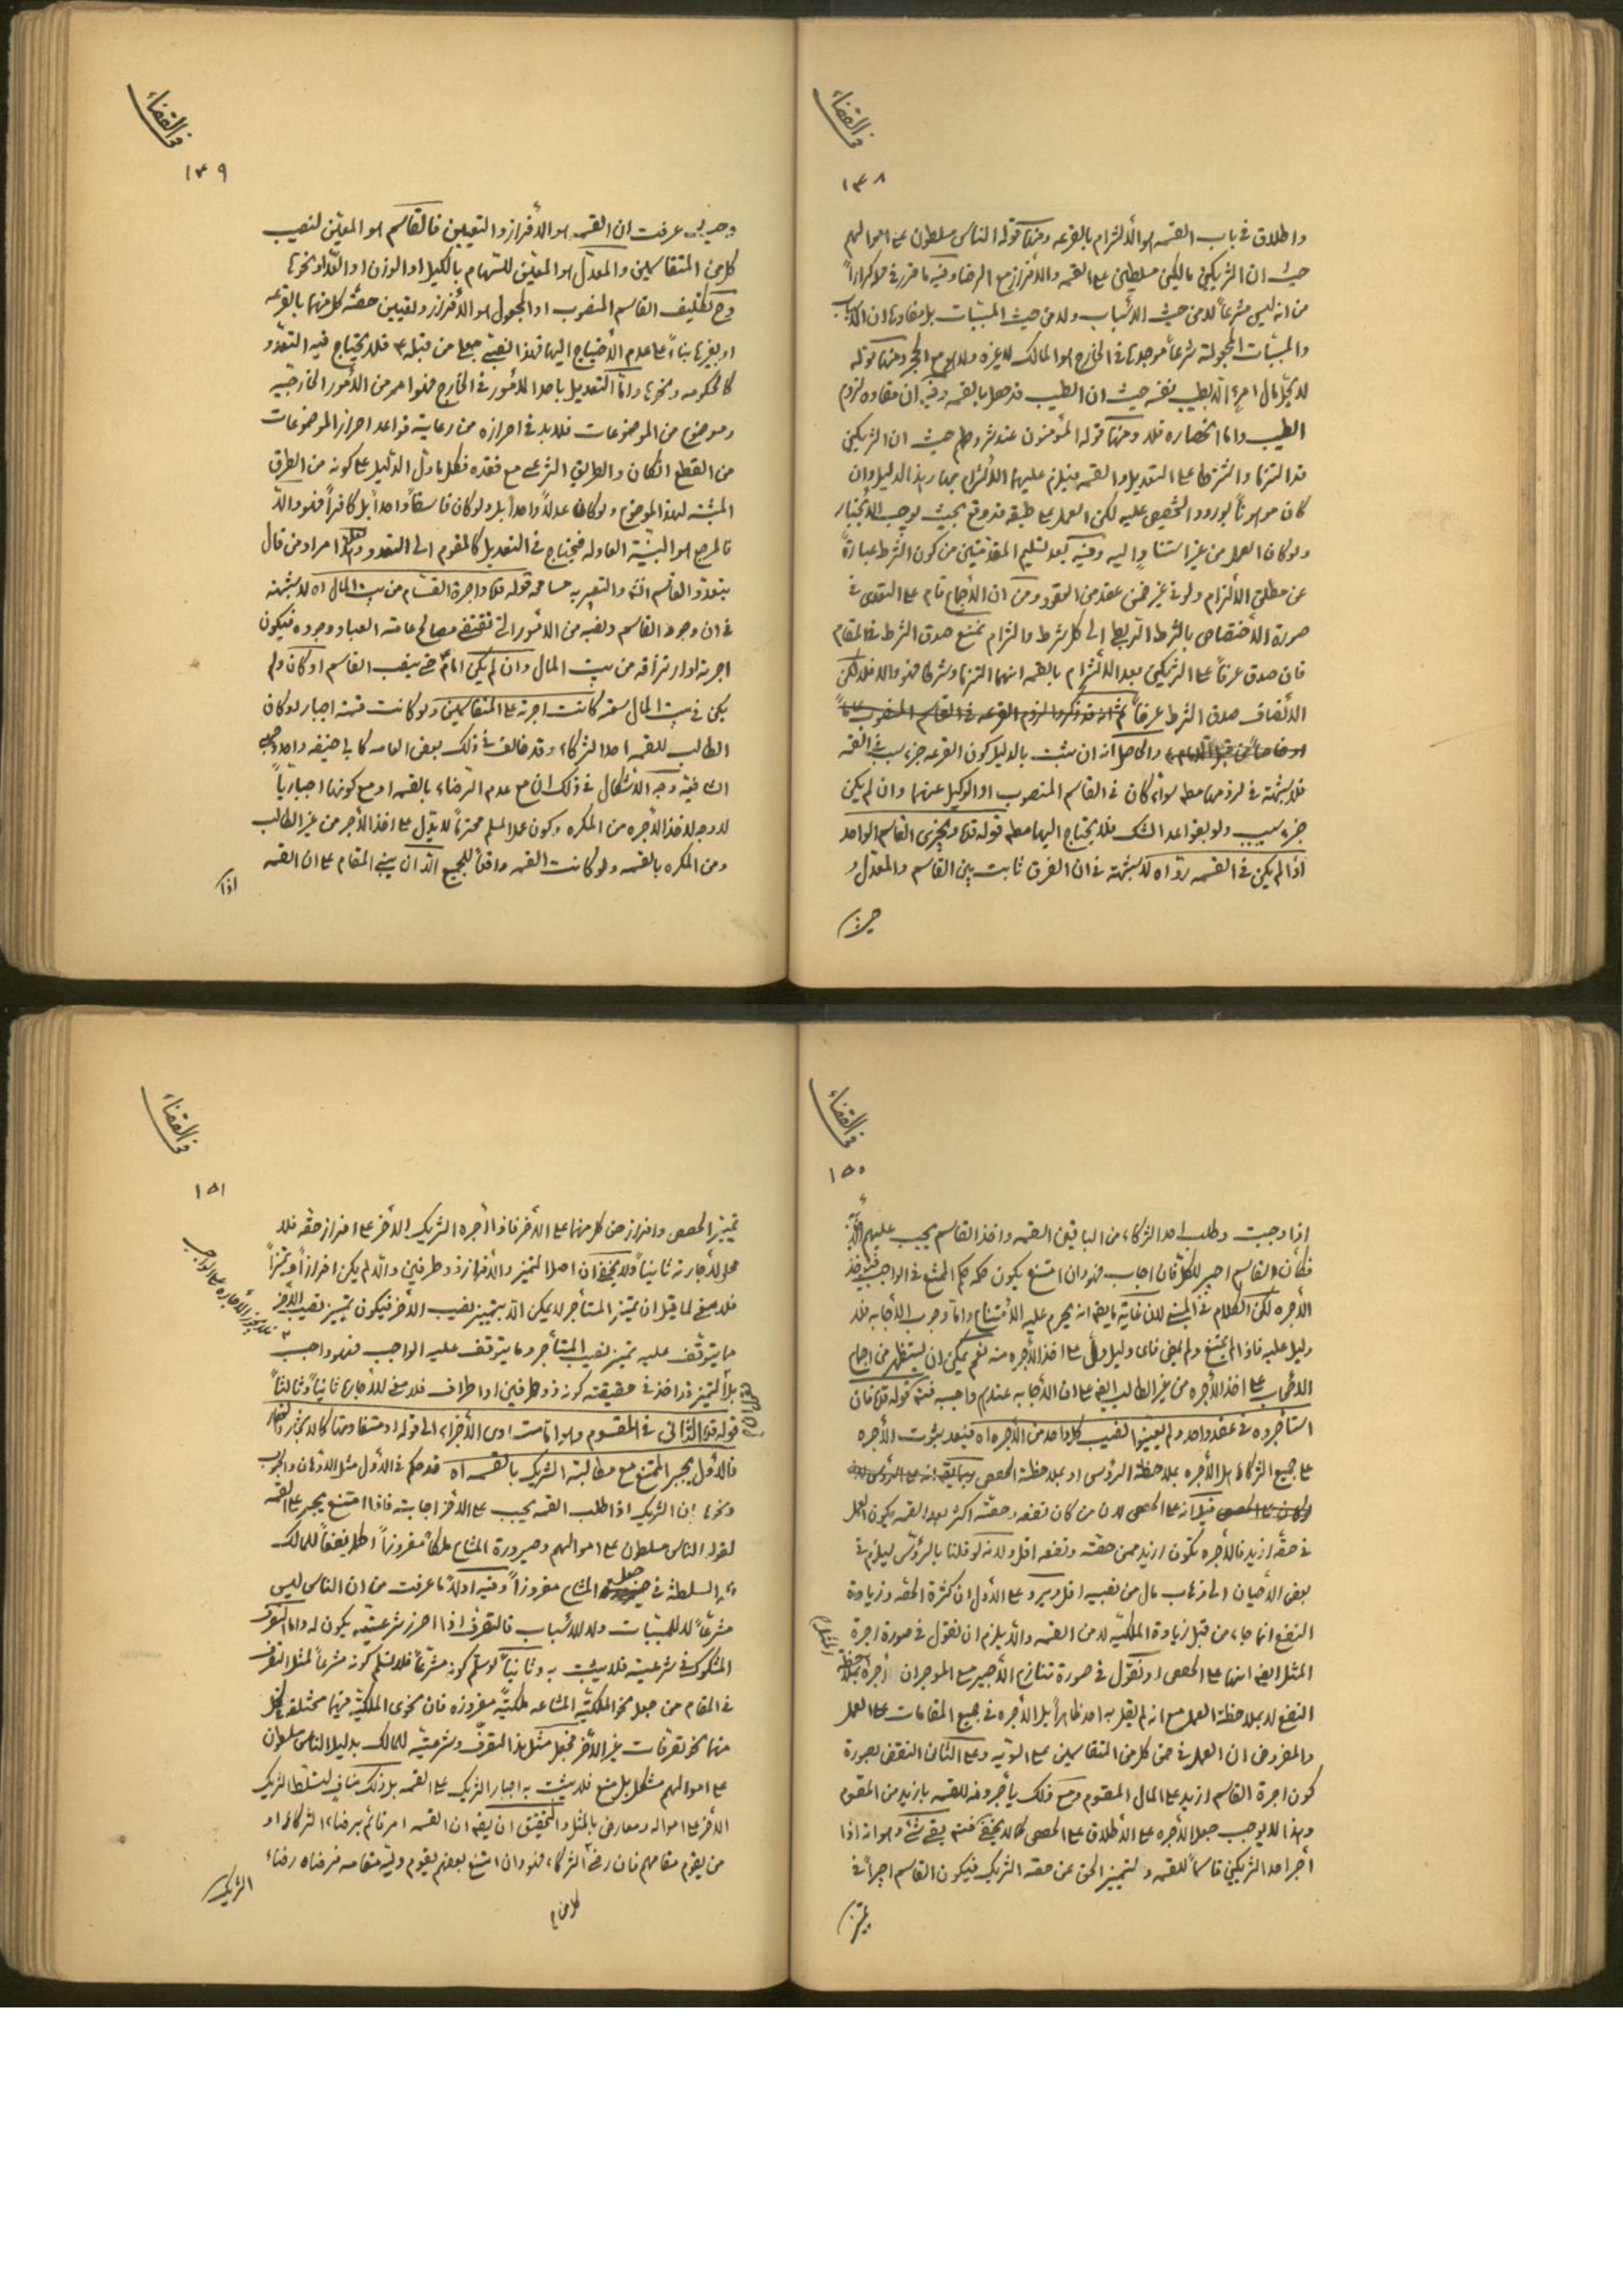 في القضاء
١٤٨
واطلاق في باب القسمه هو الألتزام بالقرعه ومنها قوله الناس مسلطون على اموالهم
حيث ان الشريكين مالكين مسلطين على القسمه والأفراز مع الرضا وفيه ما قرر في محله كراراً
من انه ليس مشرعاً لا من حيث الأسباب ولا من حيث المسببات بل مفادها ان الأسباب
والمسببات المجعولة شرعاً موجدها في الخارج هو المالك لا غيره ومنها قوله
لا يحل مال امرء الا بطيب نفسه حيث ان الطيب قد حصل بالقسمه وفيه ان مفاده لزوم
الطيب واما انحصاره فلا ومنها قوله المؤمنون عند شروطهم حيث ان الشريكين
قد التزما واشترطا على التعديل والقسمه فيلزم عليهما الألتزام بها وهذا الدليل وان
كان موهوناً لورود التخصيص عليه لكن العمل على طبقه قد وقع بحيث يوجب الأنجبار
ولو كان العمل من غير استناد اليه وفيه بعد تسليم المقدمتين من كون الشرط عبارةً
عن مطلق الألتزام ولو في غير ضمن عقد من العقود ومن ان الأجماع قام على التعدى في
صورة الأختصاص بالشرط الى كل شرط والتزام نمنع صدق الشرط في المقام
فان صدق عرفاً على الشريكين بعد الألتزام بالقسمه انهما التزما وشرطا فهو والا فلا لكن
الأنصاف صدق الشرط عرفاً ثم انه قد ذكروا لزوم القرعه في القاسم المنصوب
والحاصل انه ان ثبت بالدليل كون القرعه جزء سبب في القسمه
فلا شبهة في لزومها مطلقا سواء كان في القاسم المنصوب او الوكيل عنهما وان لم يكن
جزء سبب ولو بقواعد الشك فلا يحتاج اليها مطلقا قوله ويجزى القاسم الواحد
اذا لم يكن في القسمه رد اه لا شبهة في ان الفرق ثابت بين القاسم والمعدل و
حيث
في القضاء
١٤٩
عرفت ان القسمه هو الأفراز والتعيين فالقاسم هو المعين لنصيب
كل من المتقاسمين والمعدل هو المعين للسهام بالكيل او الوزن او العد او نحوها
وح تكليف القاسم المنصوب او المجعول هو الأفراز وتعيين حصة كل منهما بالقرعه
او بغيرها بناءً على عدم الأحتياج اليها فهذا منصب جعل من قبله فلا يحتاج فيه التعدد
كالحكومه ونحوها واما التعديل باحد الأمور في الخارج فهو امر من الأمور الخارجية
وموضوع من الموضوعات فلا بد في احرازه من رعاية قواعد احراز الموضوعات
من القطع ان كان والطريق الشرعى مع فقده فكلما دل الدليل على كونه من الطرق
المثبته لهذا الموضوع ولو كان عدلاً واحداً بل ولو كان فاسقاً واحداً بل كافراً فهو والا
فالمرجع هو البينة العادله فيحتاج في التعديل كالمقوم الى التعدد مراد من قال
بتعدد القاسم والتعبير به مسامحه قوله واجرة القسام من بيت المال اه لا شبهة
في ان وجود القاسم ونصبه من الأمور التى تقتضى مصالح عامة العباد وجوده فيكون
اجرته وارتزاقه من بيت المال وان لم يكن امام حتى ينصب القاسم او كان ولم
يكن في بيت المال سعة كانت اجرته على المتقاسمين ولو كانت قسمة اجبار لو كان
الطالب للقسمه احد الشركاء وقد خالف في ذلك بعض العامه كابى حنيفه
الشافعية وجه الأشكال في ذلك ان مع عدم الرضاء بالقسمه او مع كونها اجبارياً
لا وجه لأخذ الأجره من المكره وكون عمل المسلم محترماً لا يدل على اخذ الأجر من غير الطالب
ومن المكره بالقسمه ولو كانت القسمه واقعاً للجميع الا ان يبنى المقام على ان القسمه
اذا
في القضاء
١٥٠
اذا وجبت وطلب احد الشركاء من الباقين القسمه واخذ القاسم يجب عليهم
فكأن القاسم اجير للكل فان اجاب فهو وان امتنع يكون حكمه حكم الممتنع في الواجب
الأجره لكن الكلام في المبنى لأن غاية ما يقال انه يحرم عليه الأمتناع واما وجوب الأجابه فلا
دليل عليه فاذا لم يمتنع ولم يمض فاى دليل دل على اخذ الأجره منه نعم يمكن ان يستظهر من اجماع
الأصحاب على اخذ الأجره من غير الطالب ايضا على ان الأجابه عندهم واجبه قوله فان
استأجروه في عقد واحد ولم يعينوا نصيب كل واحد من الأجره اه فبعد ثبوت الأجره
على جميع الشركاء هل الأجره بملاحظة الرؤس او بملاحظة الحصص
قيل انه على الحصص لأن من كان نفعه وحصته اكثر بعد القسمه يكون العمل
في حقه ازيد فالأجره تكون ازيد ممن حقته ونفعه اقل ولانه لو قلنا بالرؤس ليلزم في
بعض الأحيان الى ذهاب مال من نصيبه اقل ويرد على الأول ان كثرة الحصه وزيادة
النفع انما جاء من قبل زيادة الملكيه لا من القسمه والا يلزم ان نقول في صورة اجرة
المثل ايضا انها على الحصص او نقول في صورة تنازع الأجير مع الموجر ان اجره بملاحظة
النفع لا بملاحظة العمل مع انه لم يقل به احد ظاهراً بل الأجره في جميع المقامات على العمل
والمفروض ان العمل في حق كل من المتقاسمين على السويه وعلى الثانى النقض بصورة
كون اجرة القاسم ازيد على المال المقسوم ومع ذلك يأجروه للقسمه بازيد من المقسوم
وهذا لا يوجب جعل الأجره على الأطلاق على الحصص كما لا يخفى بقى شئ وهو انه اذا
أجر احد الشريكين قاسماً للقسمه ولتميز الحق عن حصة الشريك فيكون القاسم اجيراً في
تميز
في القضاء
١٥١
تميز الحصص وافراز حق كل منهما على الأخر فاذا اأجره الشريك الأخر على افراز حقه فلا
محل لأجارته ثانياً ولا يخفى ان اصل التميز والأفراز ذو طرفين والا لم يكن افرازاً وتميزاً
فلا معنى لما قيل ان تميز المستأجر لا يمكن الا بتميز نصيب الأخر فيكون تميز نصيب الأخر
مما يتوقف عليه تميز نصيب المستأجر وما يتوقف عليه الواجب فهو واجب
فلا يجوز الأجاره على الواجب
بل التميز قد اخذ في حقيقته كونه ذو طرفين او اطراف فلا معنى للأجارة ثانياً وثالثاً
قوله الثانى في المقسوم وهو اما متساوى الأجزاء الى قوله او متفاوتها كالأشجار والعقار
فالأول يجبر الممتنع مع مطالبة الشريك بالقسمه اه قد حكم في الأول مثل الأدهان والحبوب
ونحوها ان الشريك اذا طلب القسمه يجب على الأخر اجابته فاذا امتنع يجبر على القسمه
لقوله الناس مسلطون على اموالهم وصيرورة المشاع ملكاً مفروزاً اكمل نفعاً للمالك
فله السلطنة في جعل المشاع مفروزاً وفيه اولاً ما عرفت من ان الناس ليس
مشرعاً لا للمسببات ولا للأسباب فالتصرف اذا احرز شرعيته يكون له واما التصرف
المشكوك في شرعيته فلا يثبت به وثانياً لو سلم كونه مشرعاً فلا نسلم كونه مشرعاً لمثل التصرف
في المقام من جعل نحو الملكية المشاعه ملكية مفروزه فان نحوى الملكية فيهما مختلفه لكل
منهما نحو تصرفات غير الأخر فجعل مثل هذا التصرف وشرعيته للمالك بدليل الناس مسلطون
على اموالهم مشكل بل منع فلا يثبت به اجبار الشريك على القسمه بل ذلك مناف لتسلط الشريك
الأخر على امواله ومعارض بالمثل والتحقيق ان يقال ان القسمه امر قائم برضاء الشركاء او
من يقوم مقامهم فان رضى الشركاء فهو وان امتنع بعضهم يقوم وليه مقامه فرضاه رضاء
الشريك